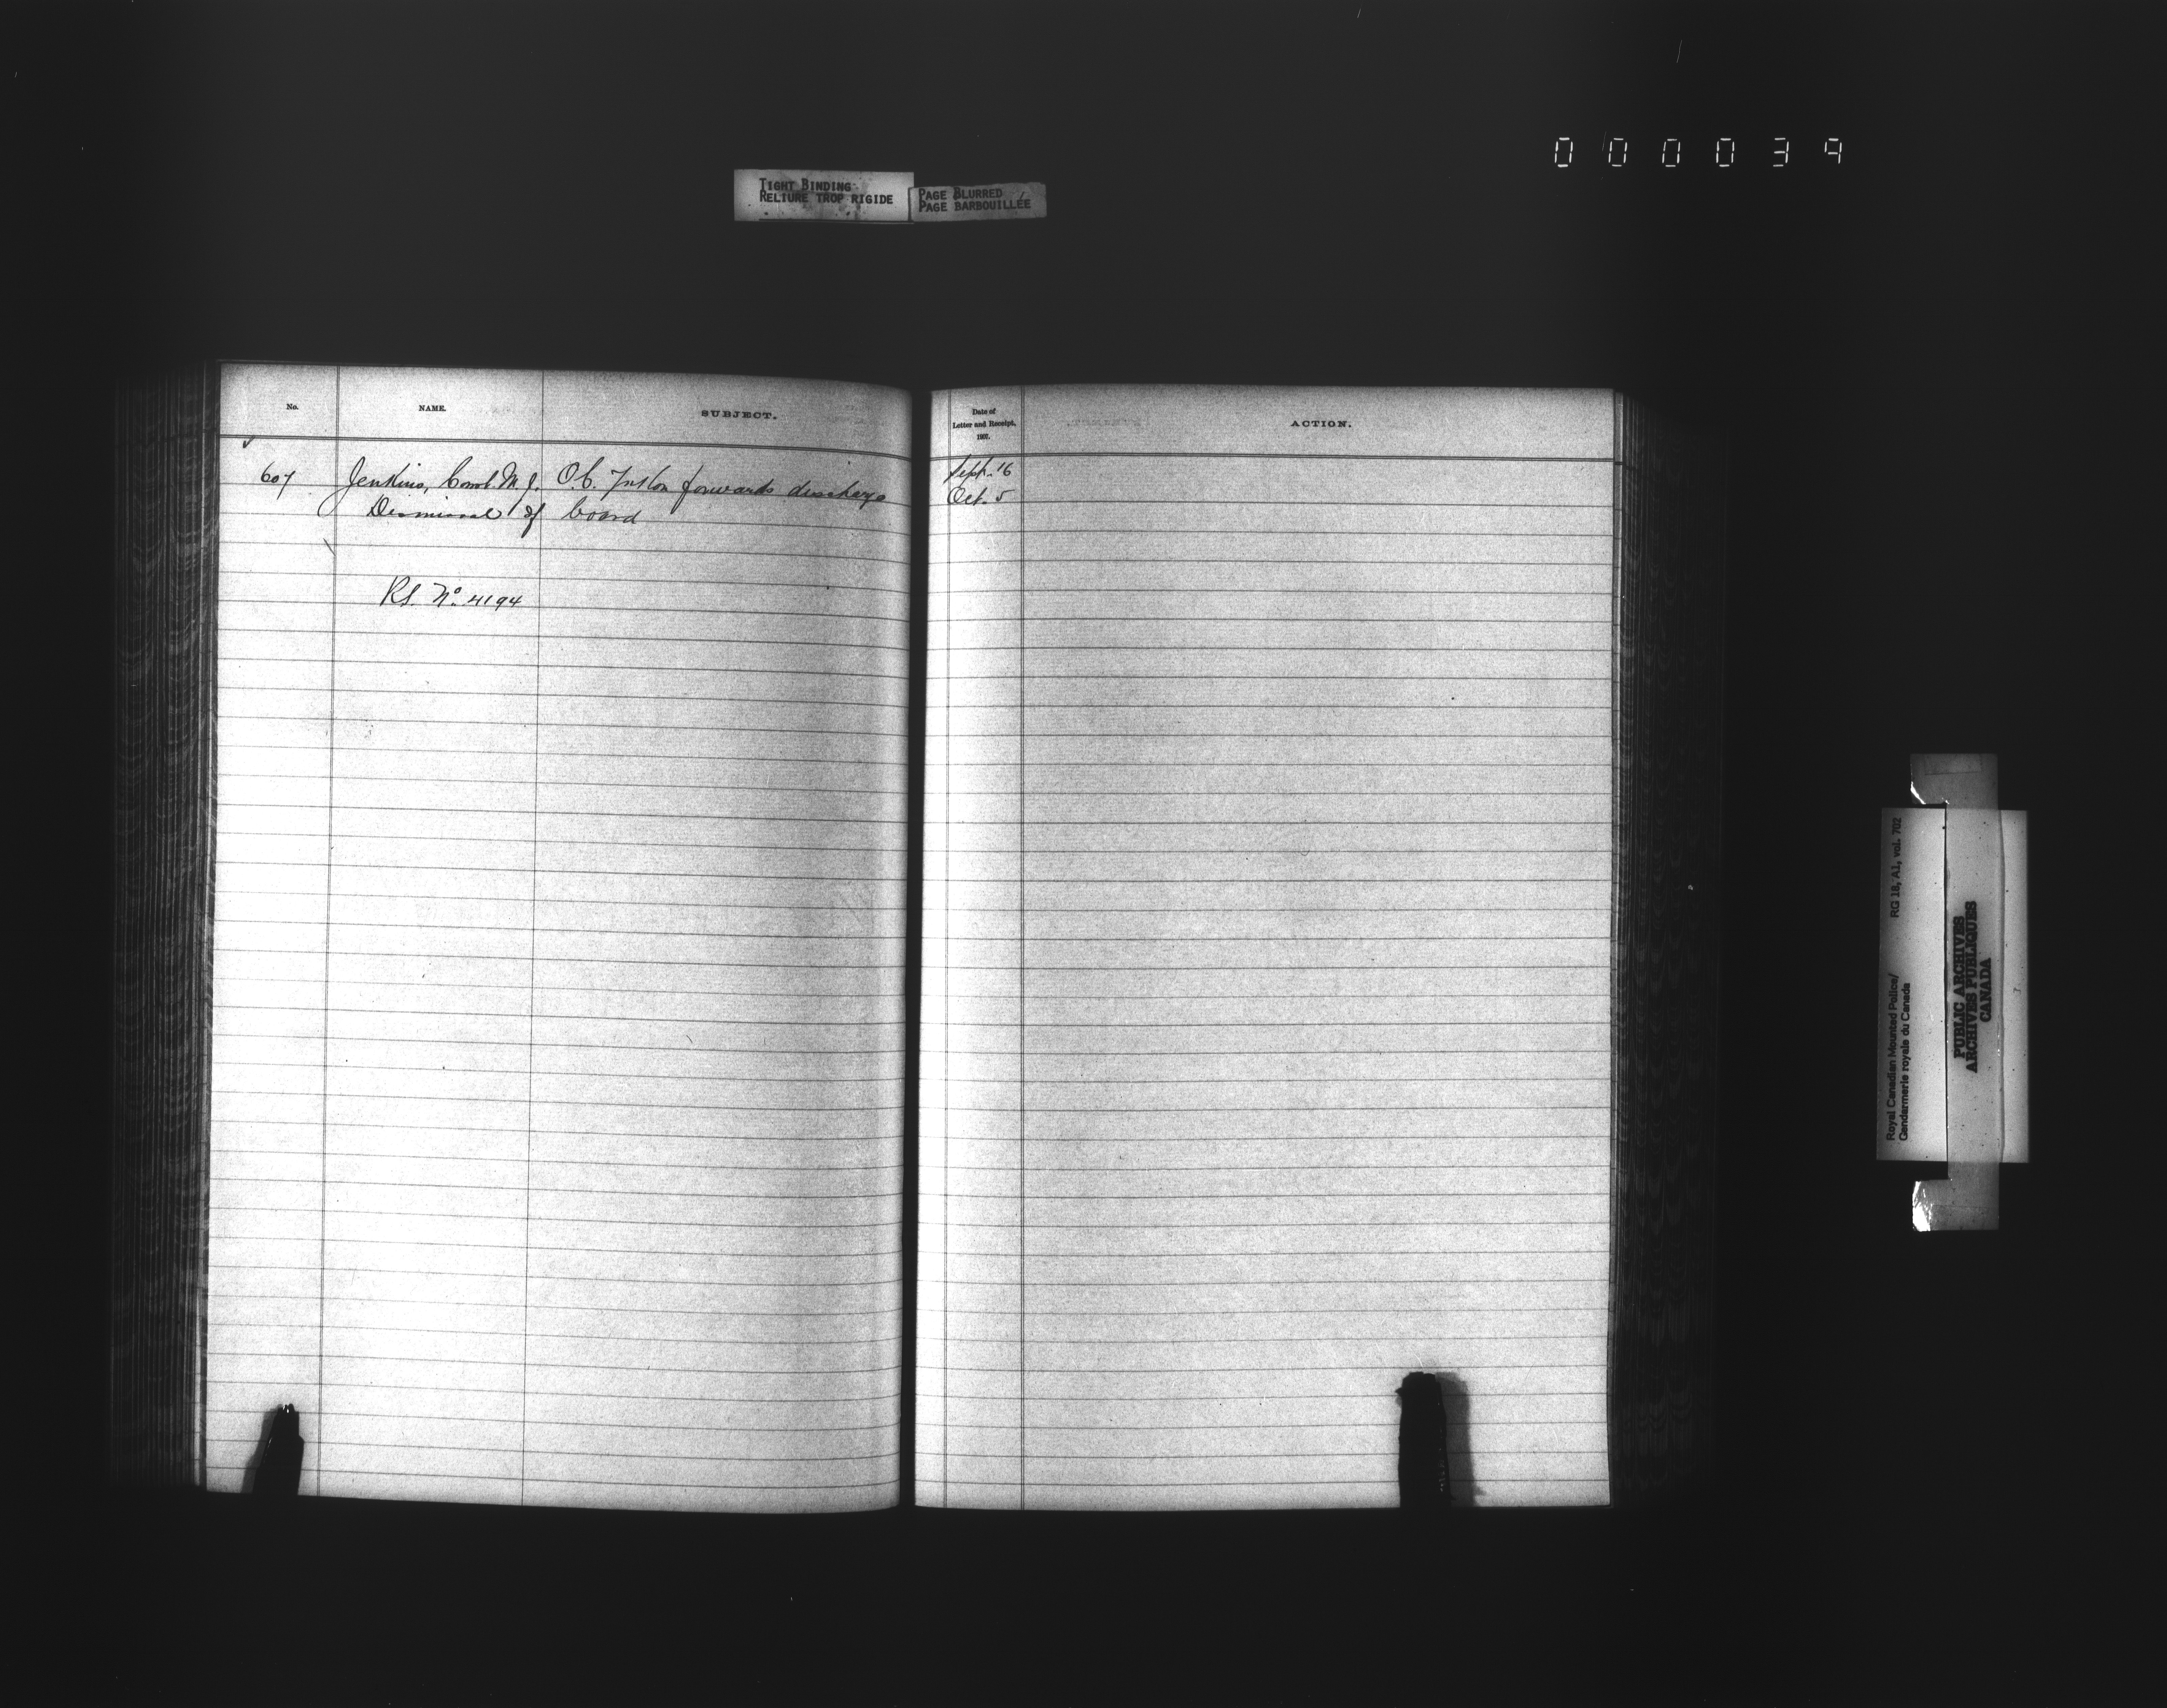 000039
TIGHT BINDING
RELIURE TROP RIGIDE
PAGE BLURRED
PAGE BARBOUILLÉE
No. NAME. SUBJECT.
607 Jenkins, Const. M. J. O.C. forwards discharge
Dismissal of board
No. 4194
Date of
Letter and Receipt,
ACTION.
Sept. 16
Oct. 5
Royal Canadian Mounted Police/ RG 18, A1, vol. 702
Gendarmerie royale du Canada
PUBLIC ARCHIVES
ARCHIVES PUBLIQUES
CANADA